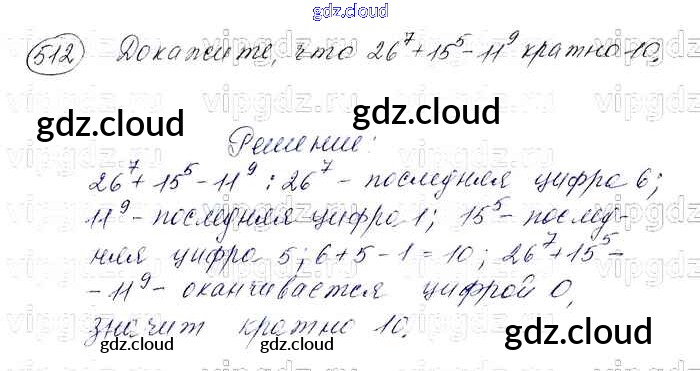 gdz.cloud
512 Докажите, что 26⁷+15⁵-11⁹ кратно 10.
gdz.cloud gdz.cloud
Решение:
26⁷+15⁵-11⁹ : 26⁷ - последняя цифра 6;
11⁹ - последняя цифра 1; 15⁵ - послед-
няя цифра 5; 6+5-1=10; 26⁷+15⁵-
-11⁹ - оканчивается цифрой 0,
значит кратно 10.
gdz.cloud gdz.cloud